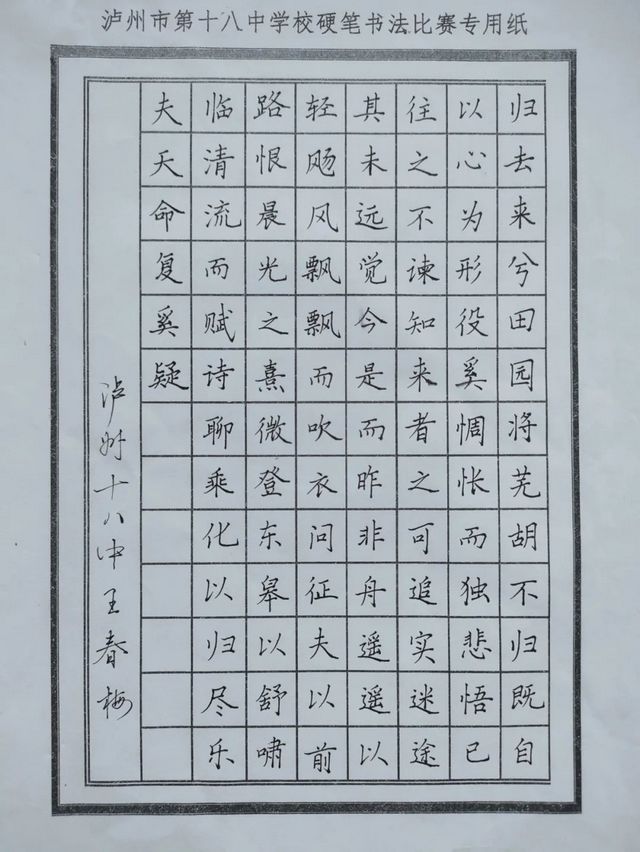 泸州市第十八中学校硬笔书法比赛专用纸
归去来兮田园将芜胡不归既自
以心为形役奚惆怅而独悲悟已
往之不谏知来者之可追实迷途
其未远觉今是而昨非舟遥遥以
轻飏风飘飘而吹衣问征夫以前
路恨晨光之熹微登东皋以舒啸
临清流而赋诗聊乘化以归尽乐
夫天命复奚疑
泸州十八中王春梅